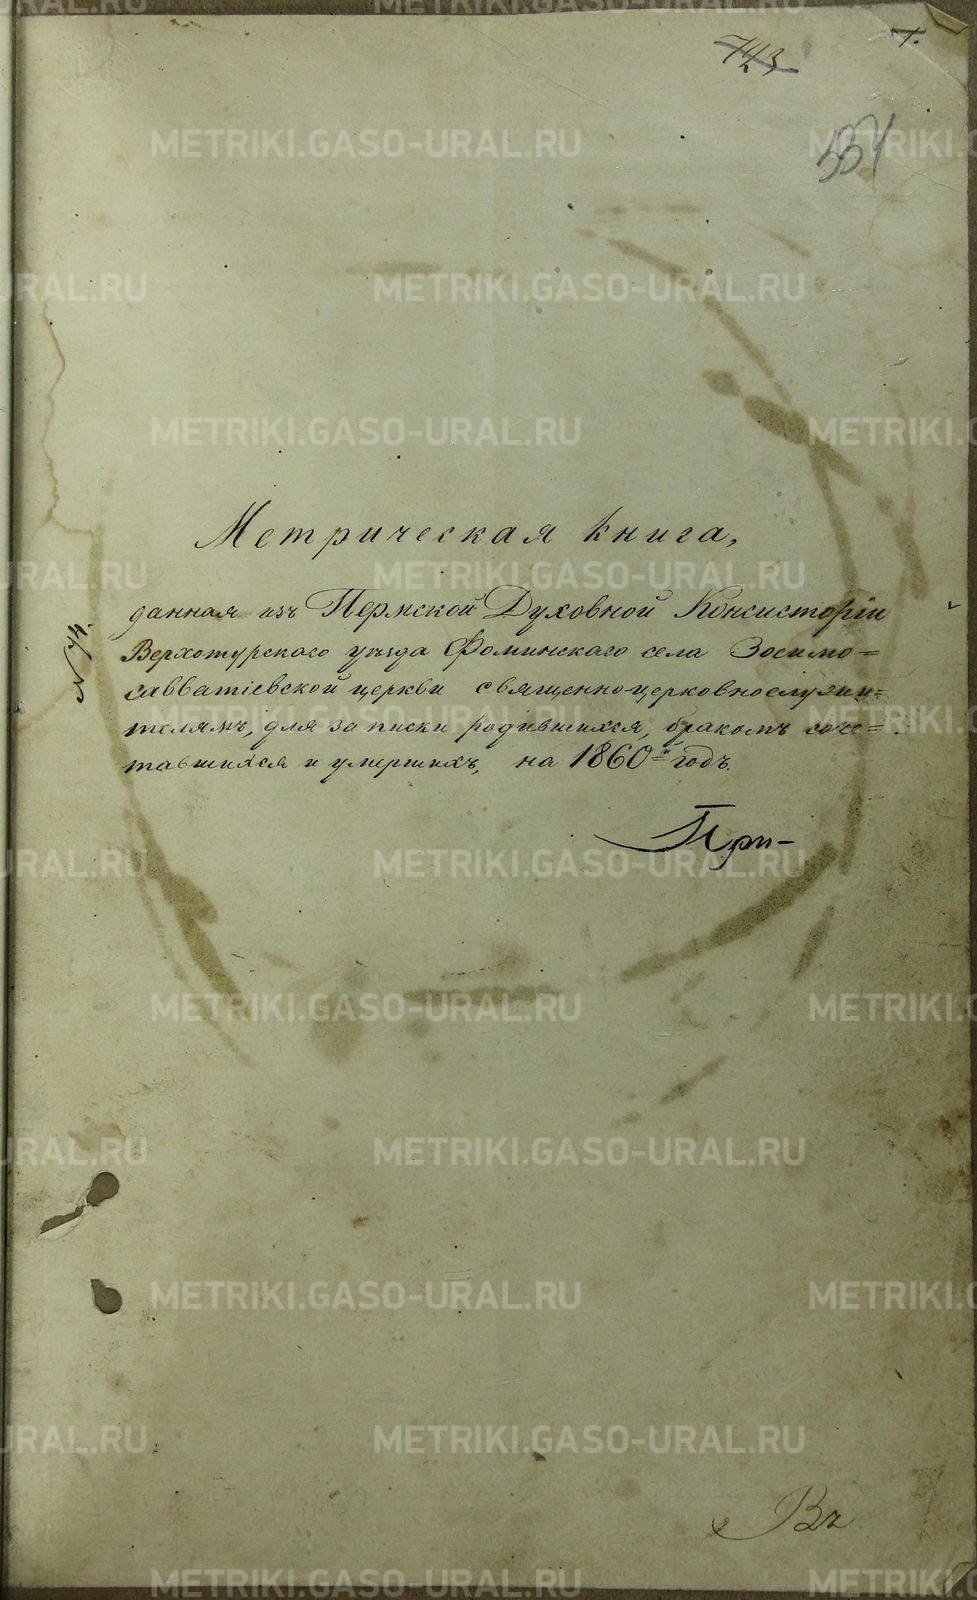 743
1.
334
Метрическая книга,
данная изъ Пермской Духовной Консисторіи
Верхотурскаго уѣзда Фоминскаго села Зосимо=
савватіевской церкви священно-церковнослужи=
телямъ, для записки родившихся, бракомъ соче=
тавшихся и умершихъ, на 1860й годъ.
N 74.
При-
METRIKI.GASO-URAL.RU